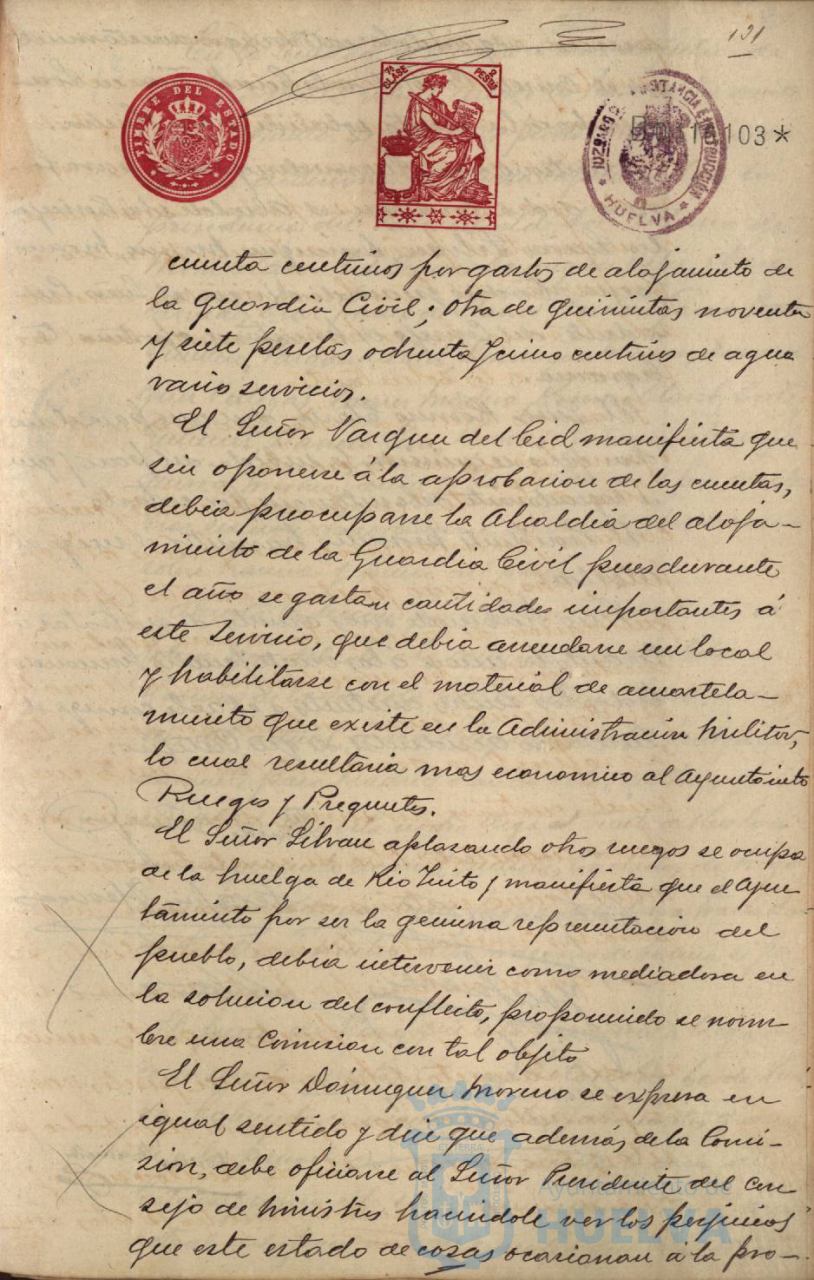 131
TIMBRE DEL ESTADO
7ª CLASE 2 PESETAS
JUZGADO DE 1ª INSTANCIA É INSTRUCCIÓN
HUELVA
103*
cuenta centimos por gastos de alojamiento de
la Guardia Civil; otra de quinientas noventa
y siete pesetas ochenta y cinco centimos de agua
vario servicios.
El Señor Vazquez del Cid manifiesta que
sin oponerse á la aprobacion de las cuentas,
debeia preocuparse la Alcaldia del aloja-
miento de la Guardia Civil pues durante
el año se gastan cantidades importantes á
este servicio, que debia arrendarse un local
y habilitarse con el material de acuartela-
miento que existe en la Administración Militar,
lo cual resultaria mas economico al Ayuntamiento
Ruegos y Preguntas.
El Señor Silvan aplazando otros ruegos se ocupa
de la huelga de Rio Tinto y manifiesta que el Ayun-
tamiento por ser la genuina representacion del
pueblo, debia intervenir como mediadora en
la solucion del conflicto, proponiendo se nom-
bre una Comision con tal objeto
El Señor Dominguez Moreno se expresa en
igual sentido y dice que además de la Comi-
sion, debe oficiarse al Señor Presidente del con
sejo de Ministros haciendole ver los perjuicios
que este estado de cosas ocasionan a la pro-
Ayuntamiento de
HUELVA